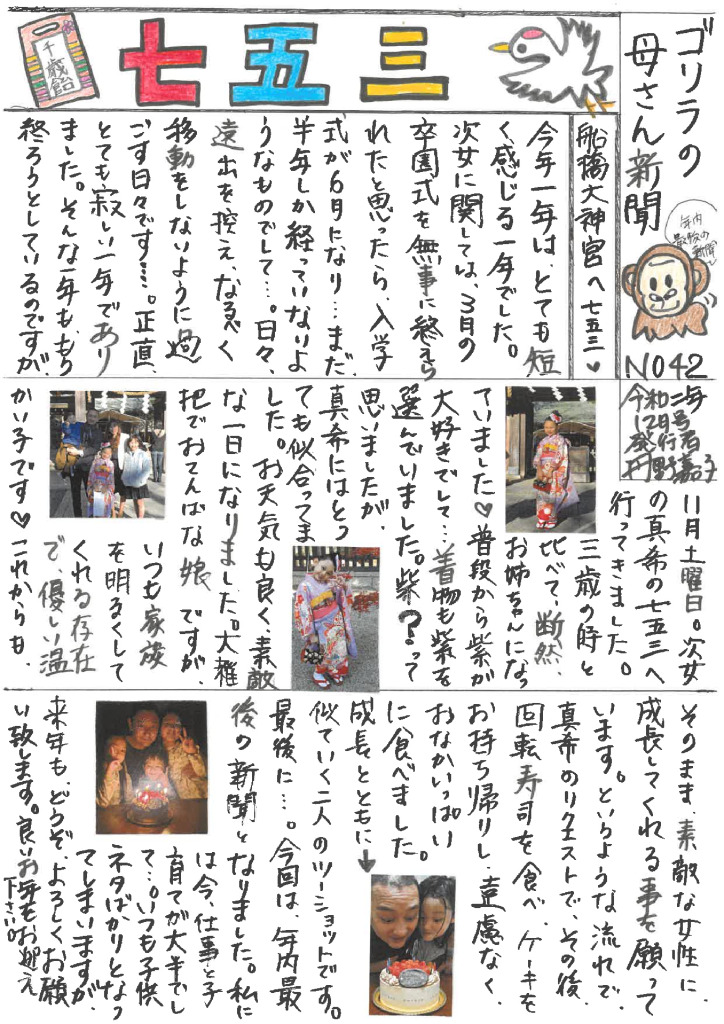 ゴリラの
母さん新聞
年内
最後の
新聞
No42
令和二年
12月号
発行者
千歳飴
七五三
船橋大神宮へ七五三♡
今年一年は、とても短
く感じる一年でした。
次女に関しては、3月の
卒園式を無事に終えら
れたと思ったら、入学
式が6月になり…まだ
半年しか経っていないよ
うなものでして…日々、
遠出を控え、なるべく
移動をしないように過
ごす日々です…。正直、
とても寂しい一年であり
ました。そんな一年も、もう
終ろうとしているのですが、
11月土曜日。次女
の真希の七五三へ
行ってきました。
三歳の時と
比べて、断然、
お姉ちゃんになっ
ていました♡普段から紫が
大好きでして…着物も紫を
選んでいました。紫?って
思いましたが、
真希にはとっ
ても似合ってま
した。お天気も良く、素敵
な一日になりました。大雑
把でおてんばな娘ですが、
いつも家族
を明るくして
くれる存在
で、優しい温
かい子です♡これからも、
そのまま、素敵な女性に
成長してくれる事を願って
います。というような流れで、
真希のリクエストで、その後、
回転寿司を食べ、ケーキを
お持ち帰りし、遠慮なく、
おなかいっぱい
に食べました。
成長とともに→
似ていく二人のツーショットです。
最後に…。今回は、年内最
後の新聞となりました。私に
は今、仕事と子
育てが大半でし
て…。いつも子供
ネタばかりとなっ
てしまいますが、
来年も、どうぞ、よろしくお願
い致します。良いお年をお迎え
下さい。